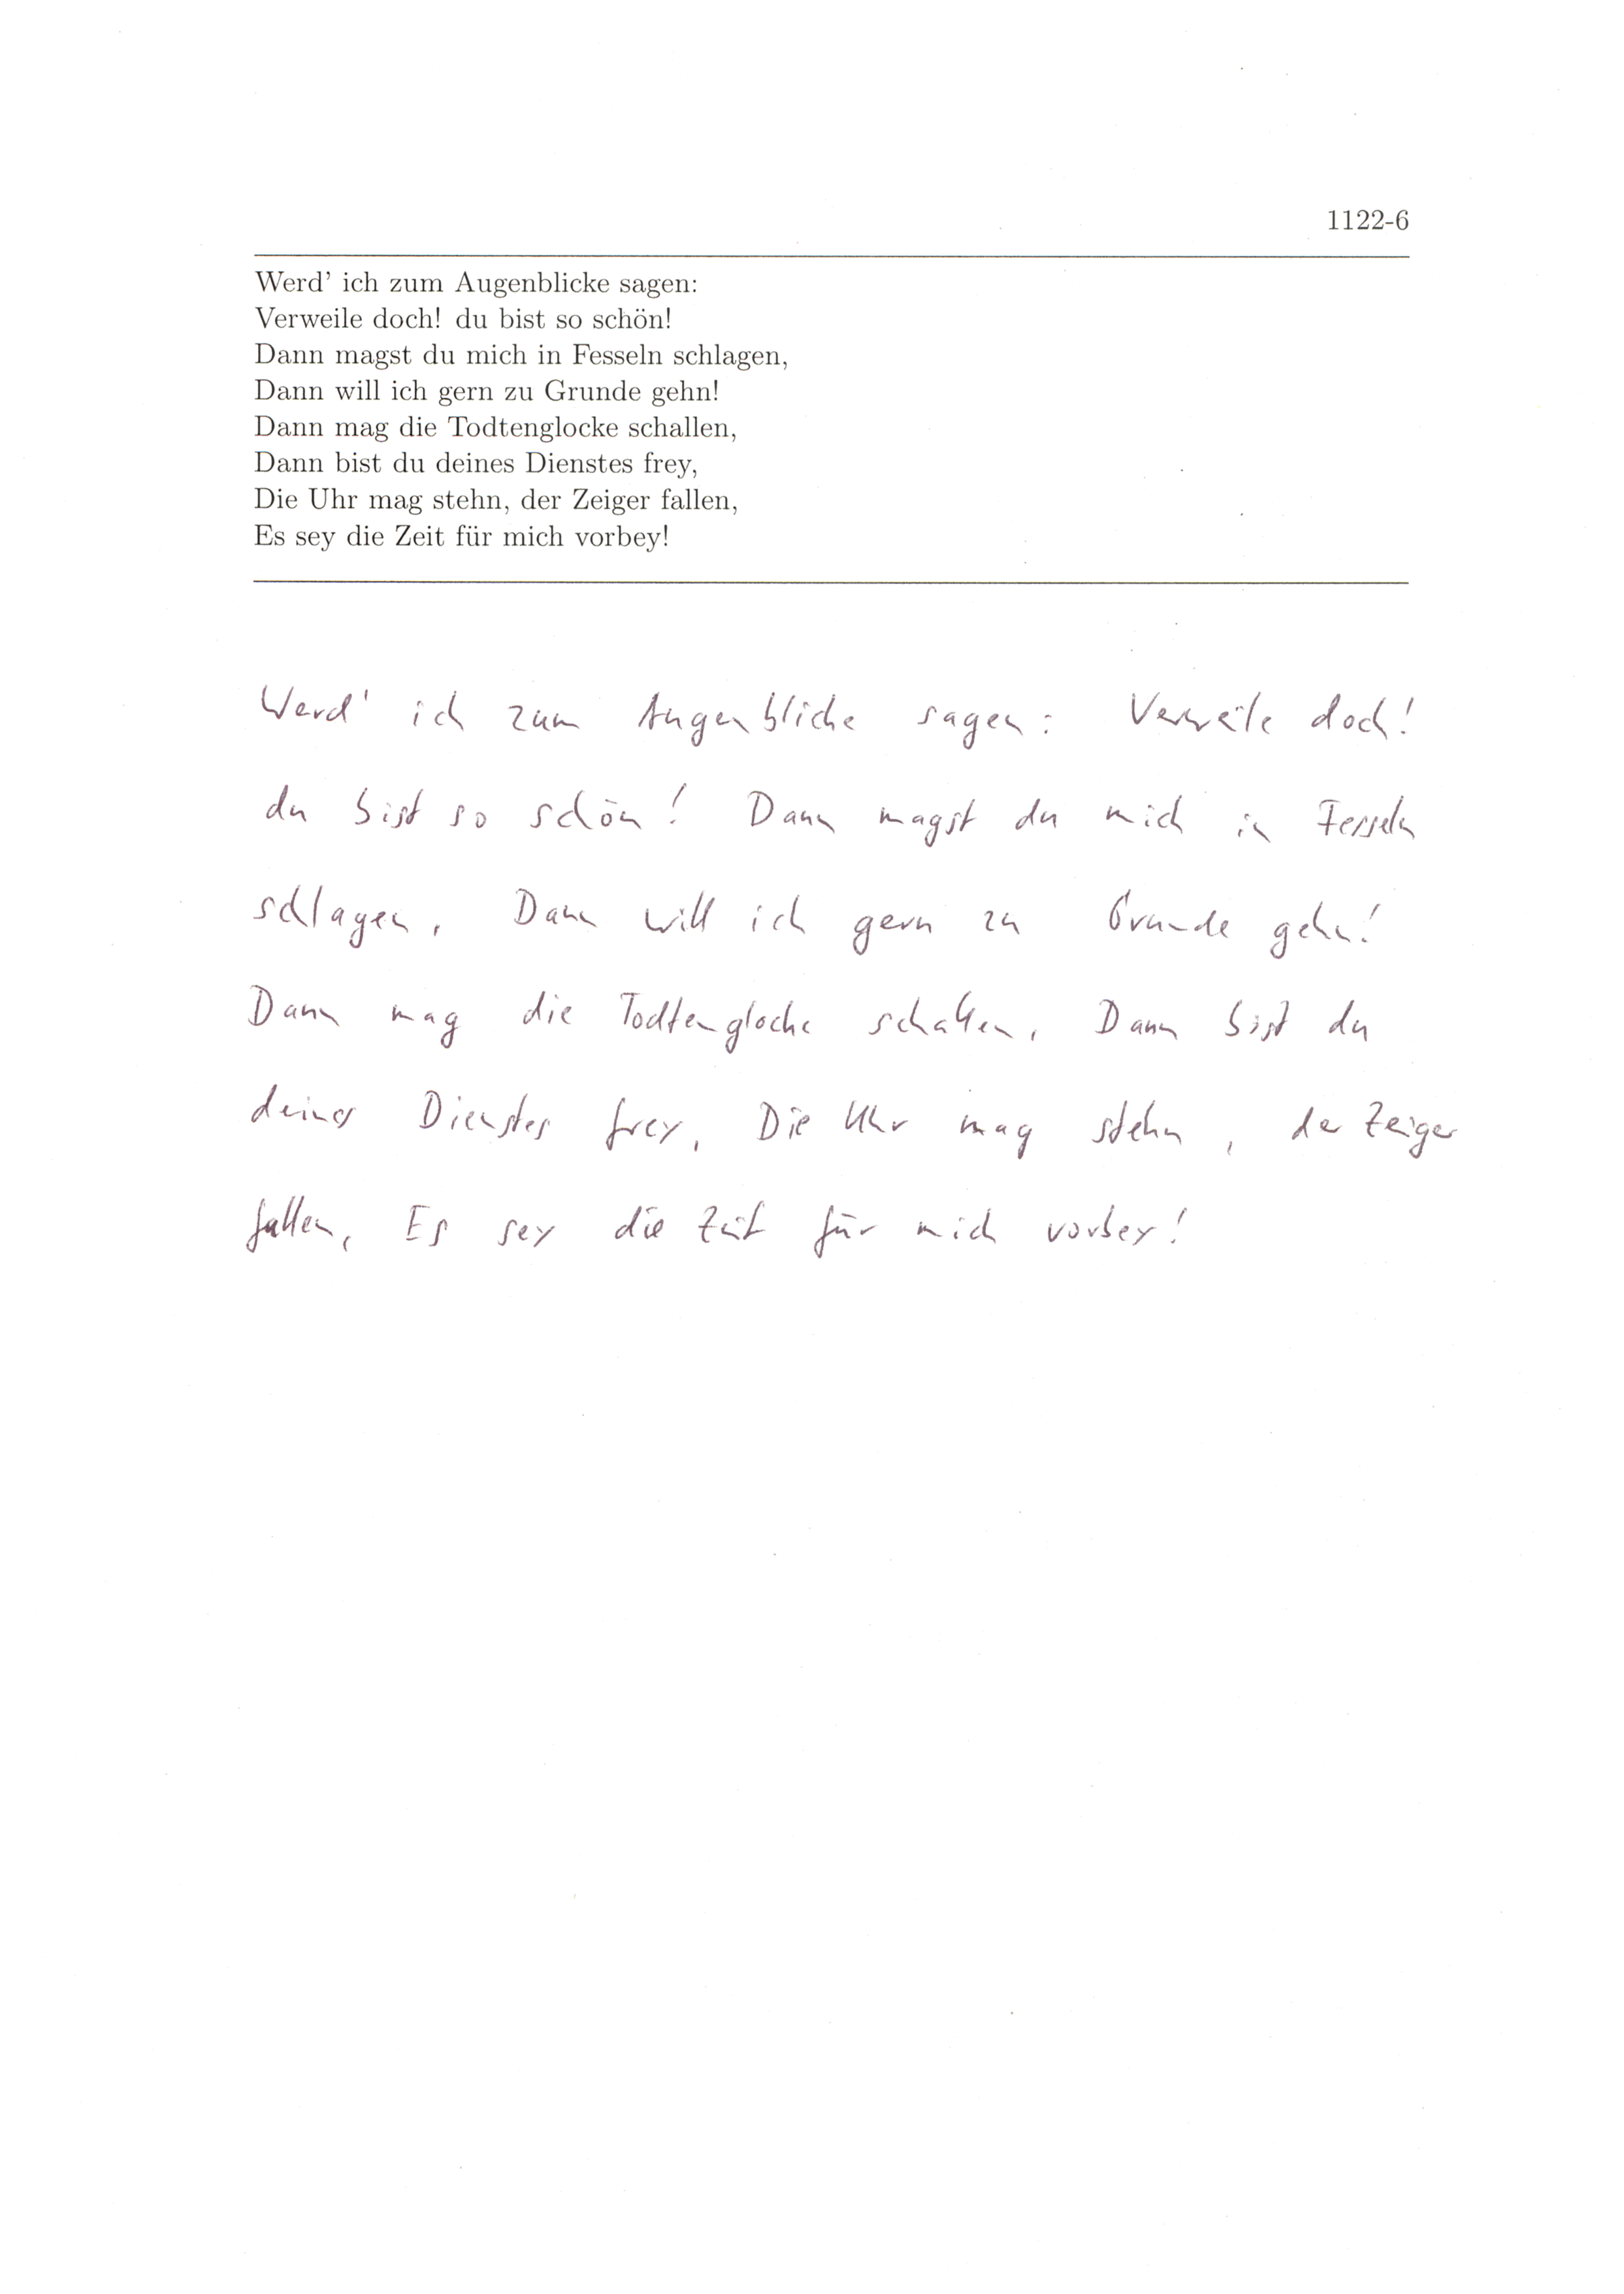 1122-6
Werd' ich zum Augenblicke sagen:
Verweile doch! du bist so schön!
Dann magst du mich in Fesseln schlagen,
Dann will ich gern zu Grunde gehn!
Dann mag die Todtenglocke schallen,
Dann bist du deines Dienstes frey,
Die Uhr mag stehn, der Zeiger fallen,
Es sey die Zeit für mich vorbey!
Werd' ich zum Augenblicke sagen: Verweile doch!
du bist so schön! Dann magst du mich in Fesseln
schlagen, Dann will ich gern zu Grunde gehn!
Dann mag die Todtenglocke schallen, Dann bist du
deines Dienstes frey, Die Uhr mag stehn, der Zeiger
fallen, Es sey die Zeit für mich vorbey!